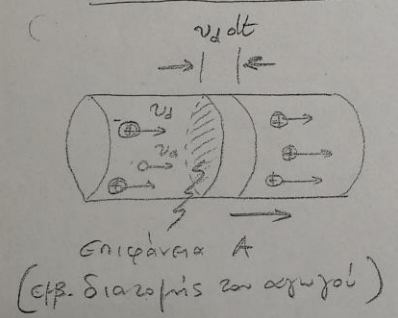 υ_d dt
υ_d
υ_d
επιφάνεια A
(εμβ. διατομής του αγωγού)